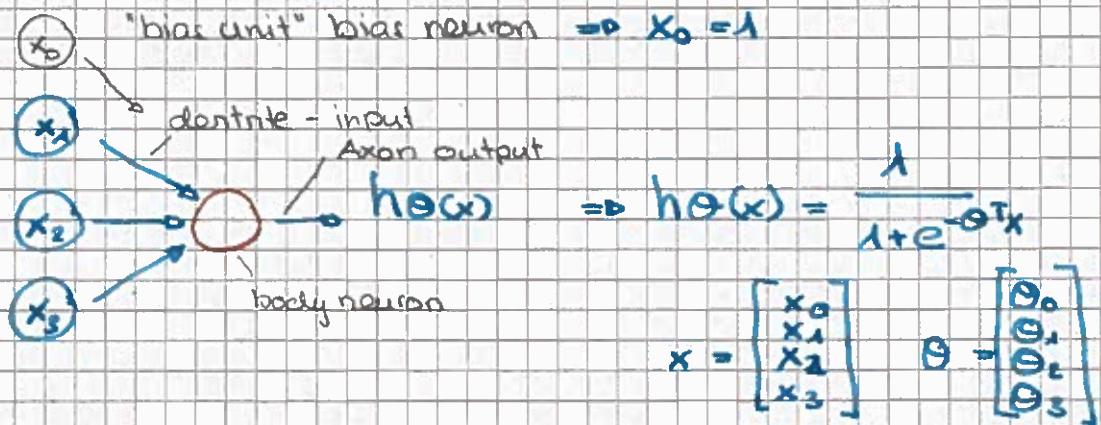 x₀ "bias unit" bias neuron => x₀ = 1
x₁ dentrite - input
Axon output
x₂ hθ(x) => hθ(x) = 1 / 1+e^-θᵀx
x₃ body neuron
x = [x₀ x₁ x₂ x₃] θ = [θ₀ θ₁ θ₂ θ₃]